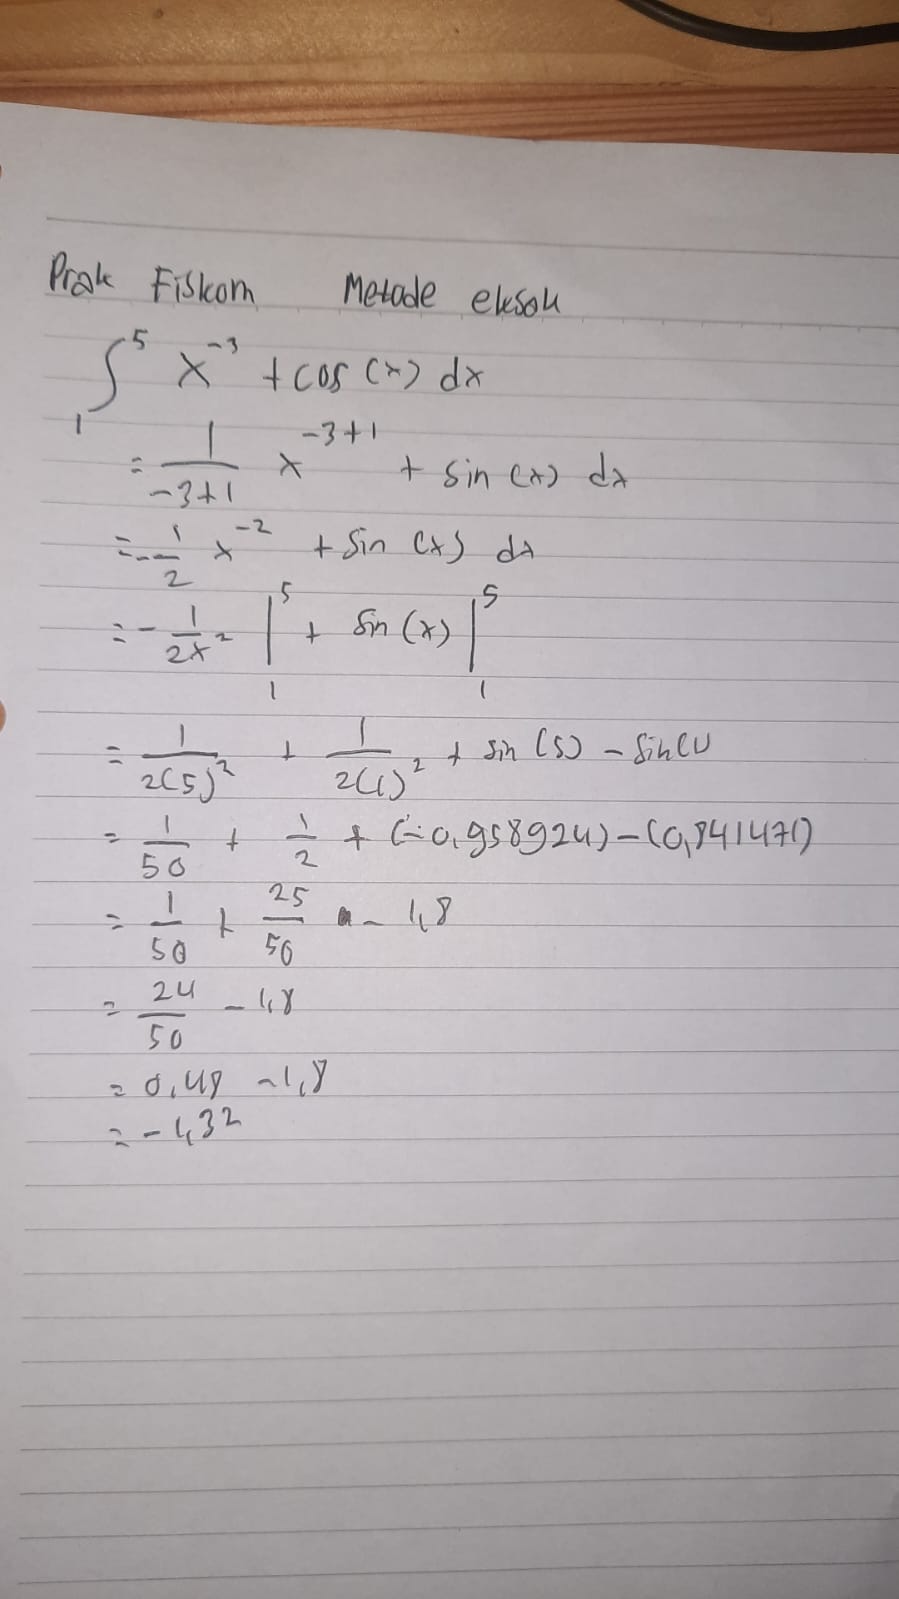 Prak Fiskom Metode eksak
∫₁⁵ x⁻³ + cos (x) dx
= 1/(-3+1) x⁻³⁺¹ + sin (x) dx
= -1/2 x⁻² + sin (x) dx
= - 1/2x² |₁⁵ + sin (x) |₁⁵
= 1/2(5)² + 1/2(1)² + sin (5) - sin(1)
= 1/50 + 1/2 + (-0,958924) - (0,841471)
= 1/50 + 25/50 - 1,8
= 24/50 - 1,8
= 0,48 - 1,8
= - 1,32